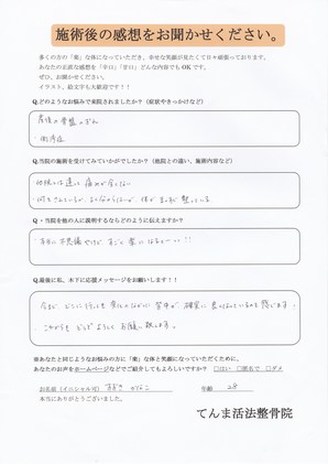 施術後の感想をお聞かせください。
多くの方の「楽」な体になっていただき、幸せな笑顔が見たくて日々頑張っております。
あなたの正直な感想を「辛口」「甘口」どんな内容でもOKです。
ぜひ、お聞かせください。
イラスト、絵文字も大歓迎です！！
Q.どのようなお悩みで来院されましたか？（症状やきっかけなど）
産後の骨盤のずれ
・側湾症
Q.当院の施術を受けてみていかがでしたか？（他院との違い、施術内容など）
・他院とは違って痛みが全くない
体が
整っている
Q・当院を他の人に説明するならどのように伝えますか？
本当に不思議やけど、すごく楽になるよー！！
Q.最後に私、木下に応援メッセージをお願いします！！
今まで、どこに行っても
背中が確実に
感じます。
・これからも どうぞよろしくお願い致します。
※あなたと同じようなお悩みの方に「楽」な体と笑顔になっていただくために、
あなたのお声をホームページなどでご紹介してもよろしいですか？ □はい □匿名で □ダメ
お名前（イニシャル可） 年齢 28
本当にありがとうございました。
てんま活法整骨院